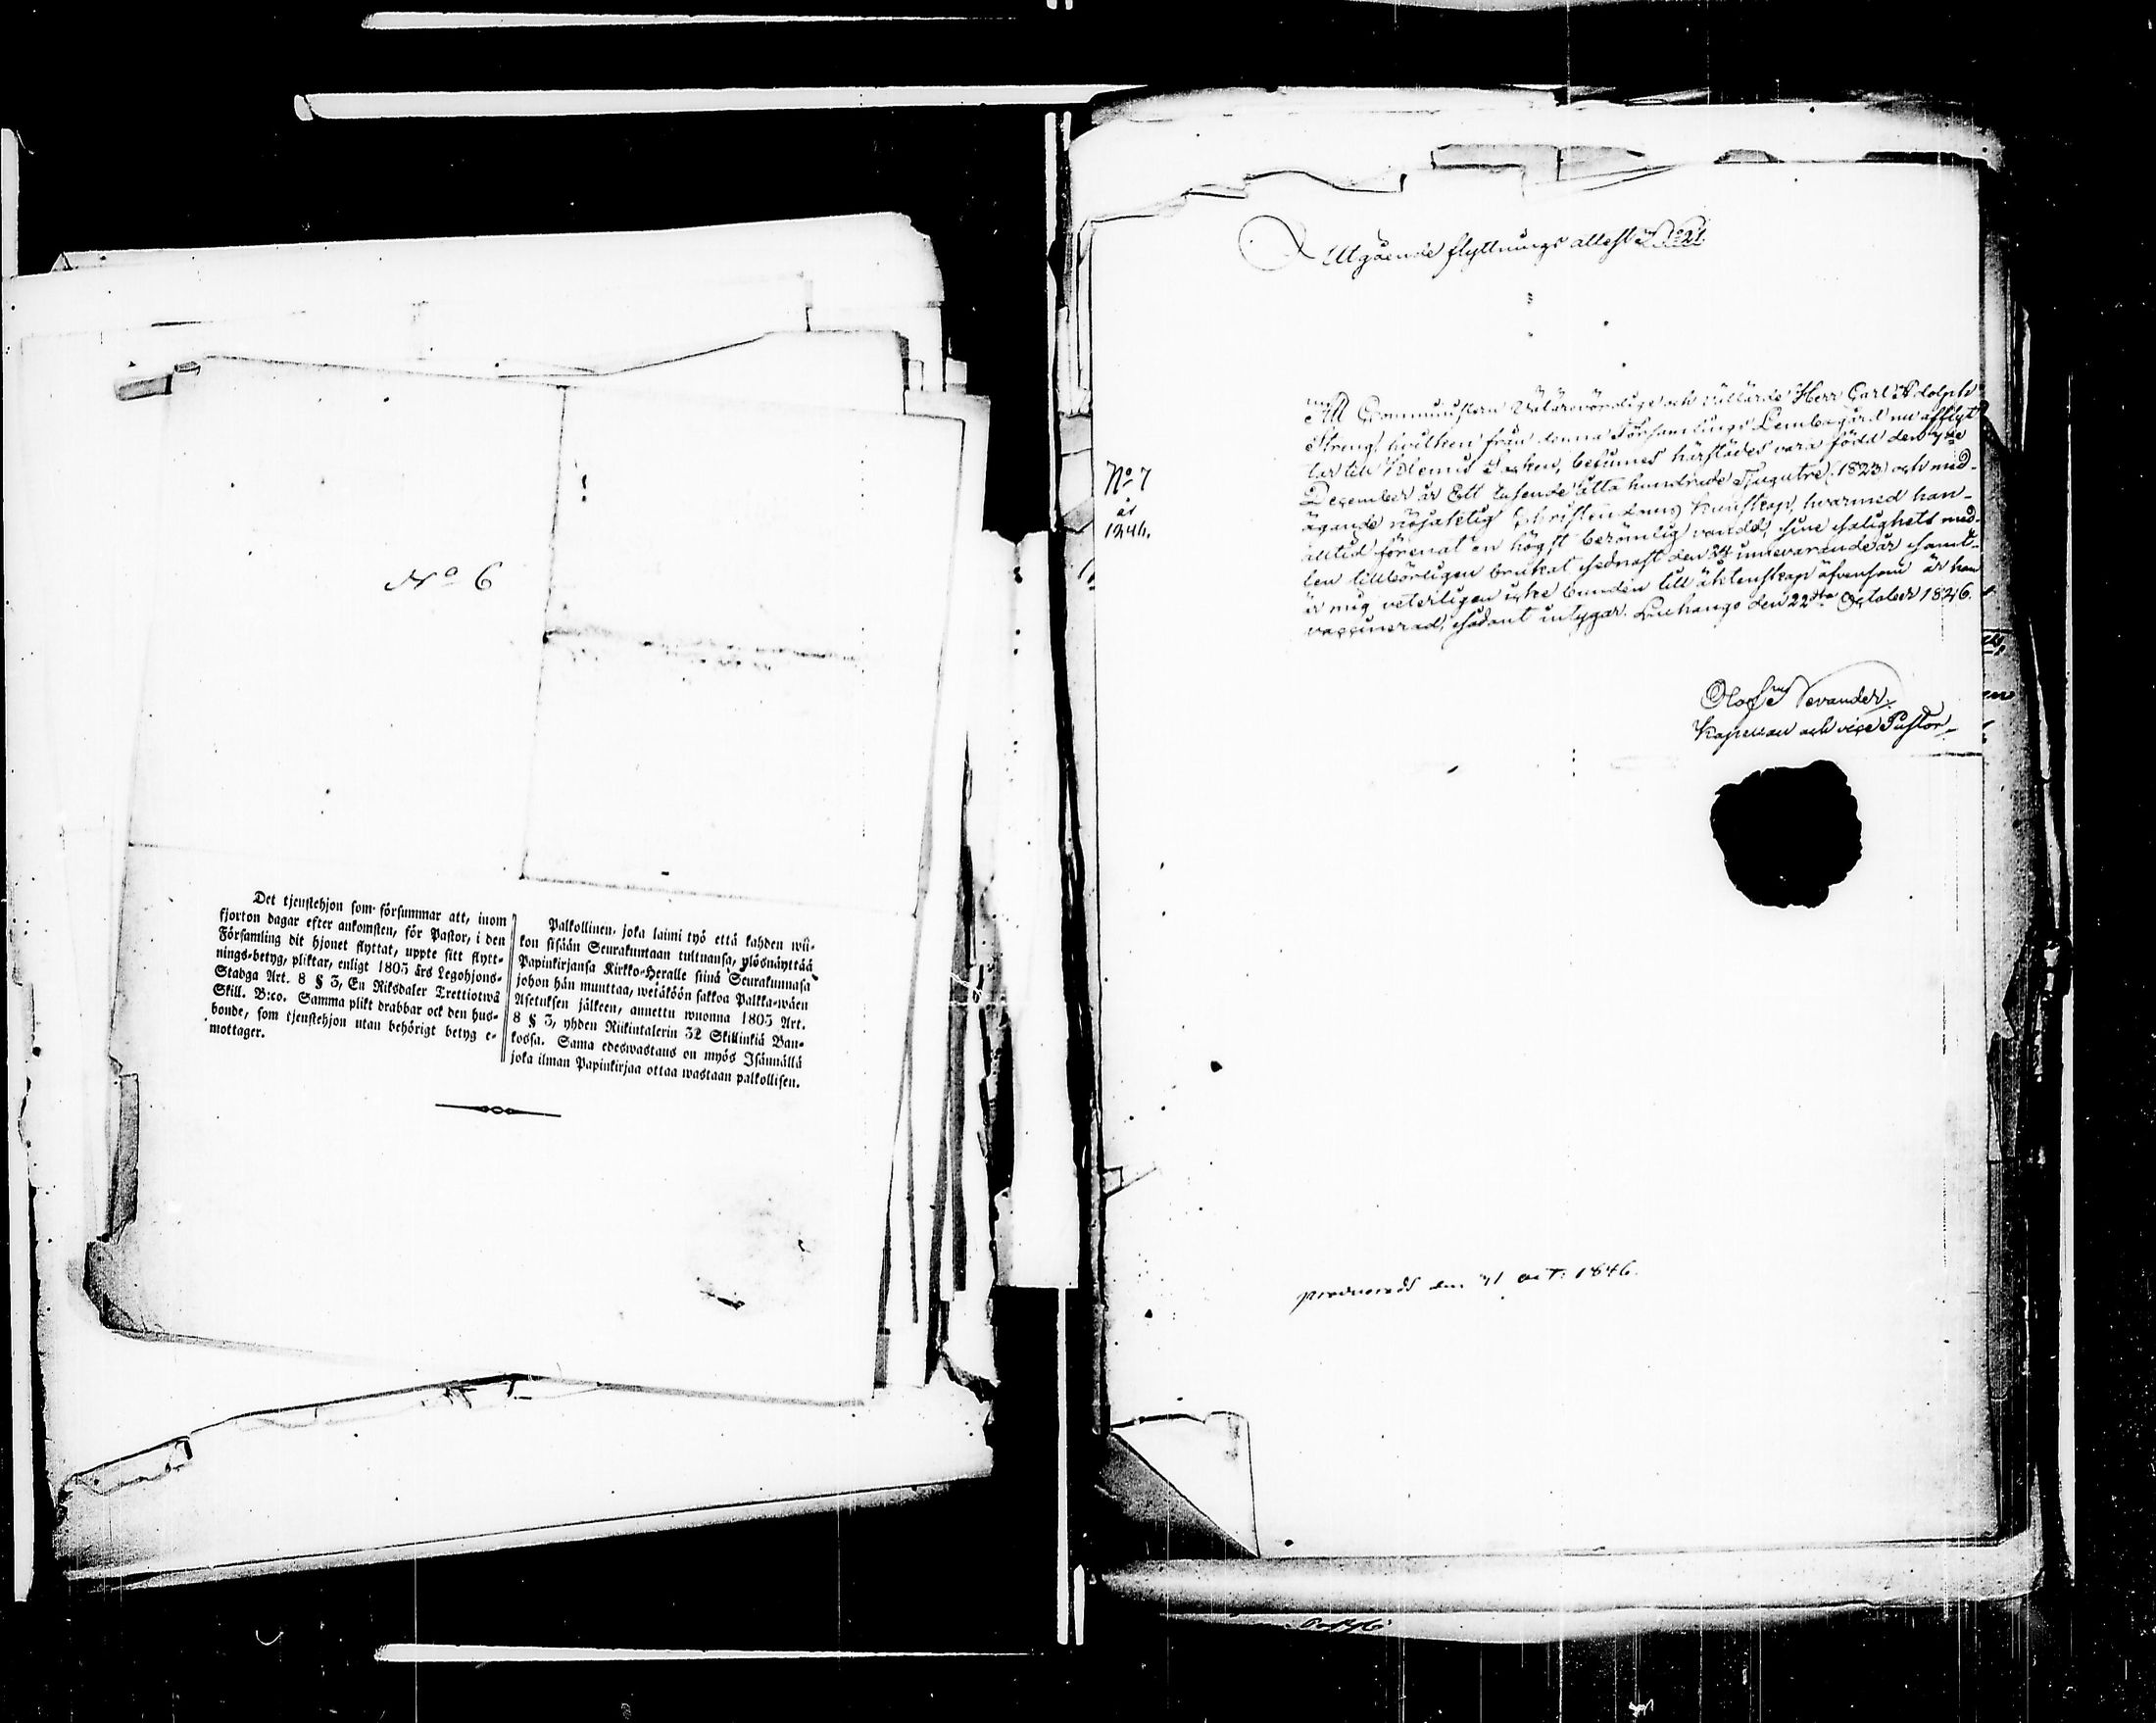 No 6
Det tjenstehjon som försummar att, inom
fjorton dagar efter ankomsten, för Pastor, i den
Församling dit hjonet flyttat, uppte sitt flytt-
nings-betyg, pliktar, enligt 1805 års Legohjons-
Stadga Art. 8 § 3, En Riksdaler Trettiotwå
Skill. B:co. Samma plikt drabbar ock den hus-
bonde, som tjenstehjon utan behörigt betyg e-
mottager.
Palkollinen joka laimi työ että kahden wii-
kon sisään Seurakuntaan tultuansa, ylösnäyttää
Papinkirjansa Kirkko-Heralle siinä Seurakunnasa
johon hän muuttaa, wetäköön sakkoa Palkka-wäen
Asetuksen jälkeen, annettu wuonna 1805 Art.
8 § 3, yhden Riikintalerin 32 Skillinkiä Ban-
kossa. Sama edeswastaus on myös Isännällä
joka ilman Papinkirjaa ottaa wastaan palkollisen.
Utgående flyttnings attest No 21.
No 7
år
1846.
Att Communistern Välärevördige och Vällärde Herr Carl Adolph
Streng, hvilken från denna Församlings Lembegård nu afflyt
tar till Socken, befinnes härstädes vara född den
December år Ett tusende åtta hundrade Tjugutre (1823) och med-
ägande nöjaktig Christendoms kunskap, hvarmed han-
alltid förenat en högst berömlig vandel, sine salighets med-
len tillbörligen brukat sednast den innevarande år samt-
är mig veterligen icke bunden till äktenskap äfvensom är han
vaccinerad, sådant intygar. Luhango den 22dra October 1846.
Olof Nevander.
Kapellan och vice Pastor
produceradt den 31 oct: 1846.